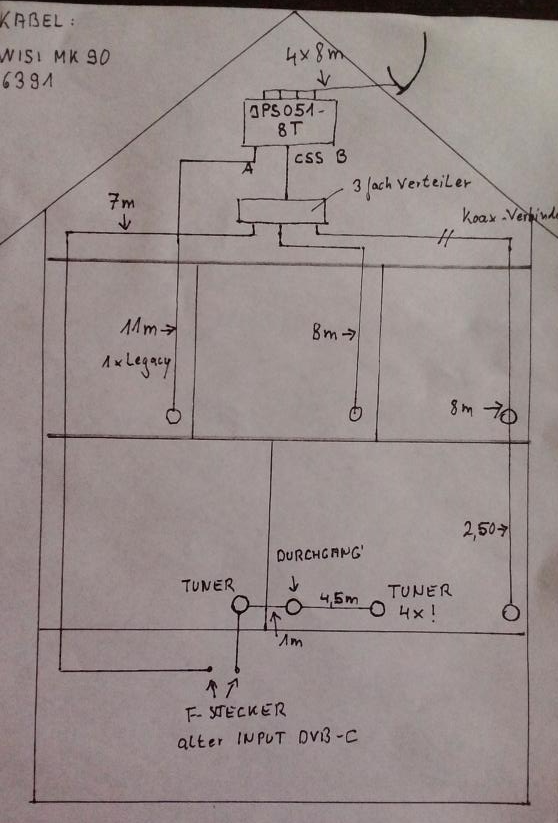 KABEL:
WISI MK 90
6391
4x8m
JPS051-
8T
A
CSS B
3fach Verteiler
7m
11m
1x Legacy
8m
8m
2,50
DURCHGANG
TUNER
4,5m
TUNER
4x!
1m
F-STECKER
alter INPUT DVB-C